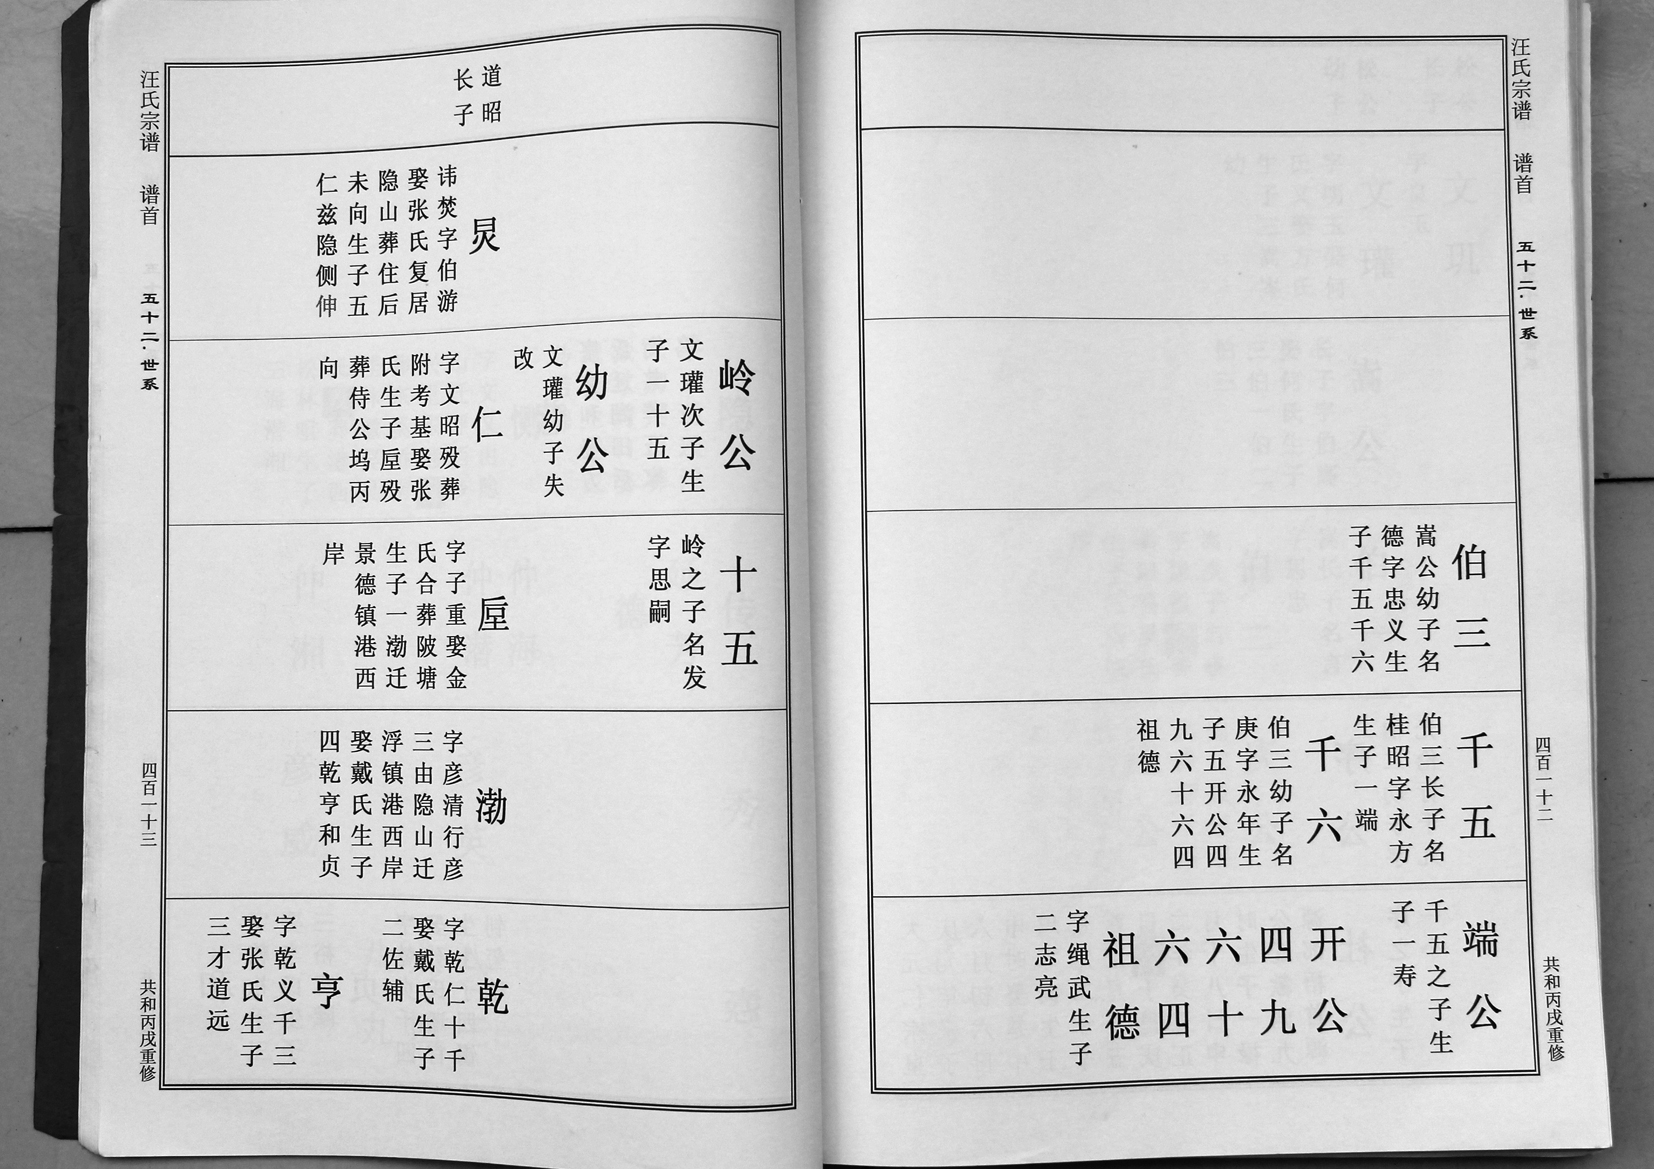 汪氏宗谱 谱首 五十二·世系 四百一十二 共和丙戌重修
伯三
嵩公幼子名
德字忠义生
子千五千六
千五
伯三长子名
桂昭字永方
生子一端
千六
伯三幼子名
庚字永年生
子五开公四
九六十六四
祖德
端公
千五之子生
子一寿
开公
四九
六十
六四
祖德
字绳武生子
二志亮
汪氏宗谱 谱首 五十二·世系 四百一十三 共和丙戌重修
道昭
长子
炅
讳焚字伯游
娶张氏复居
隐山葬住后
未向生子五
仁兹隐侧伸
岭公
文瓘次子生
子一十五
幼公
文瓘幼子失
改
仁
字文昭殁葬
附考基娶张
氏生子垕殁
葬侍公坞丙
向
十五
岭之子名发
字思嗣
垕
字子重娶金
氏合葬陂塘
生子一渤迁
景德镇港西
岸
渤
字彦清行彦
三由隐山迁
浮镇港西岸
娶戴氏生子
四乾亨和贞
乾
字乾仁十千
娶戴氏生子
二佐辅
亨
字乾义千三
娶张氏生子
三才道远